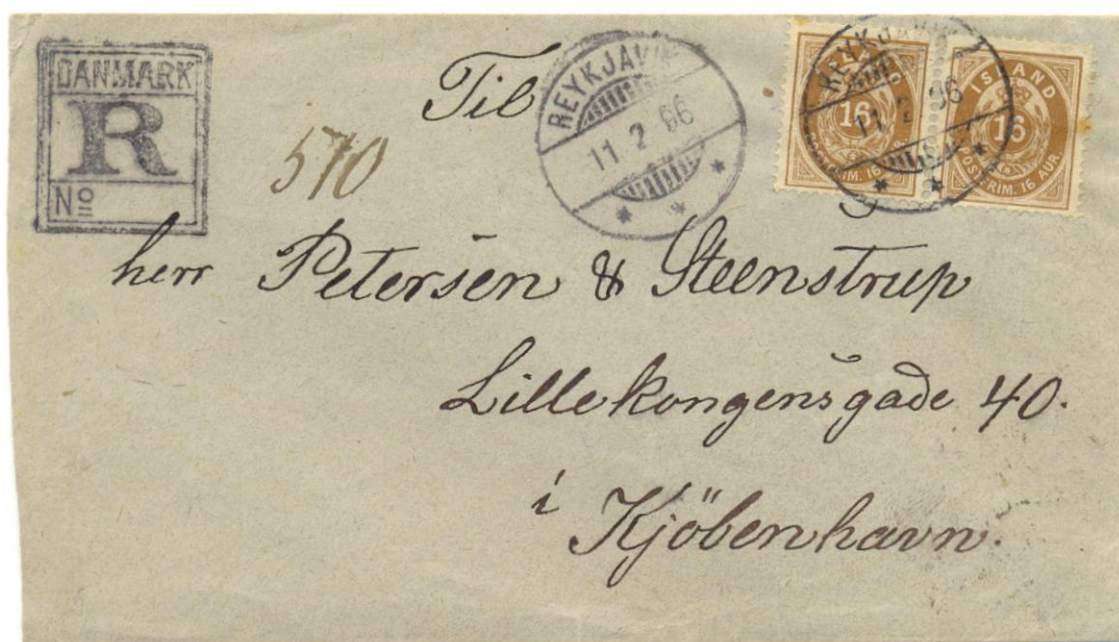 DANMARK
R
Nº
570
REYKJAVIK
11 2 96
REYKJAVIK
11 2 96
ÍSLAND
16
PÓSTFRIM. 16 AUR.
ÍSLAND
16
PÓSTFRIM. 16 AUR.
Til
herr Petersen & Steenstrup
Lillekongensgade 40.
i Kjöbenhavn.